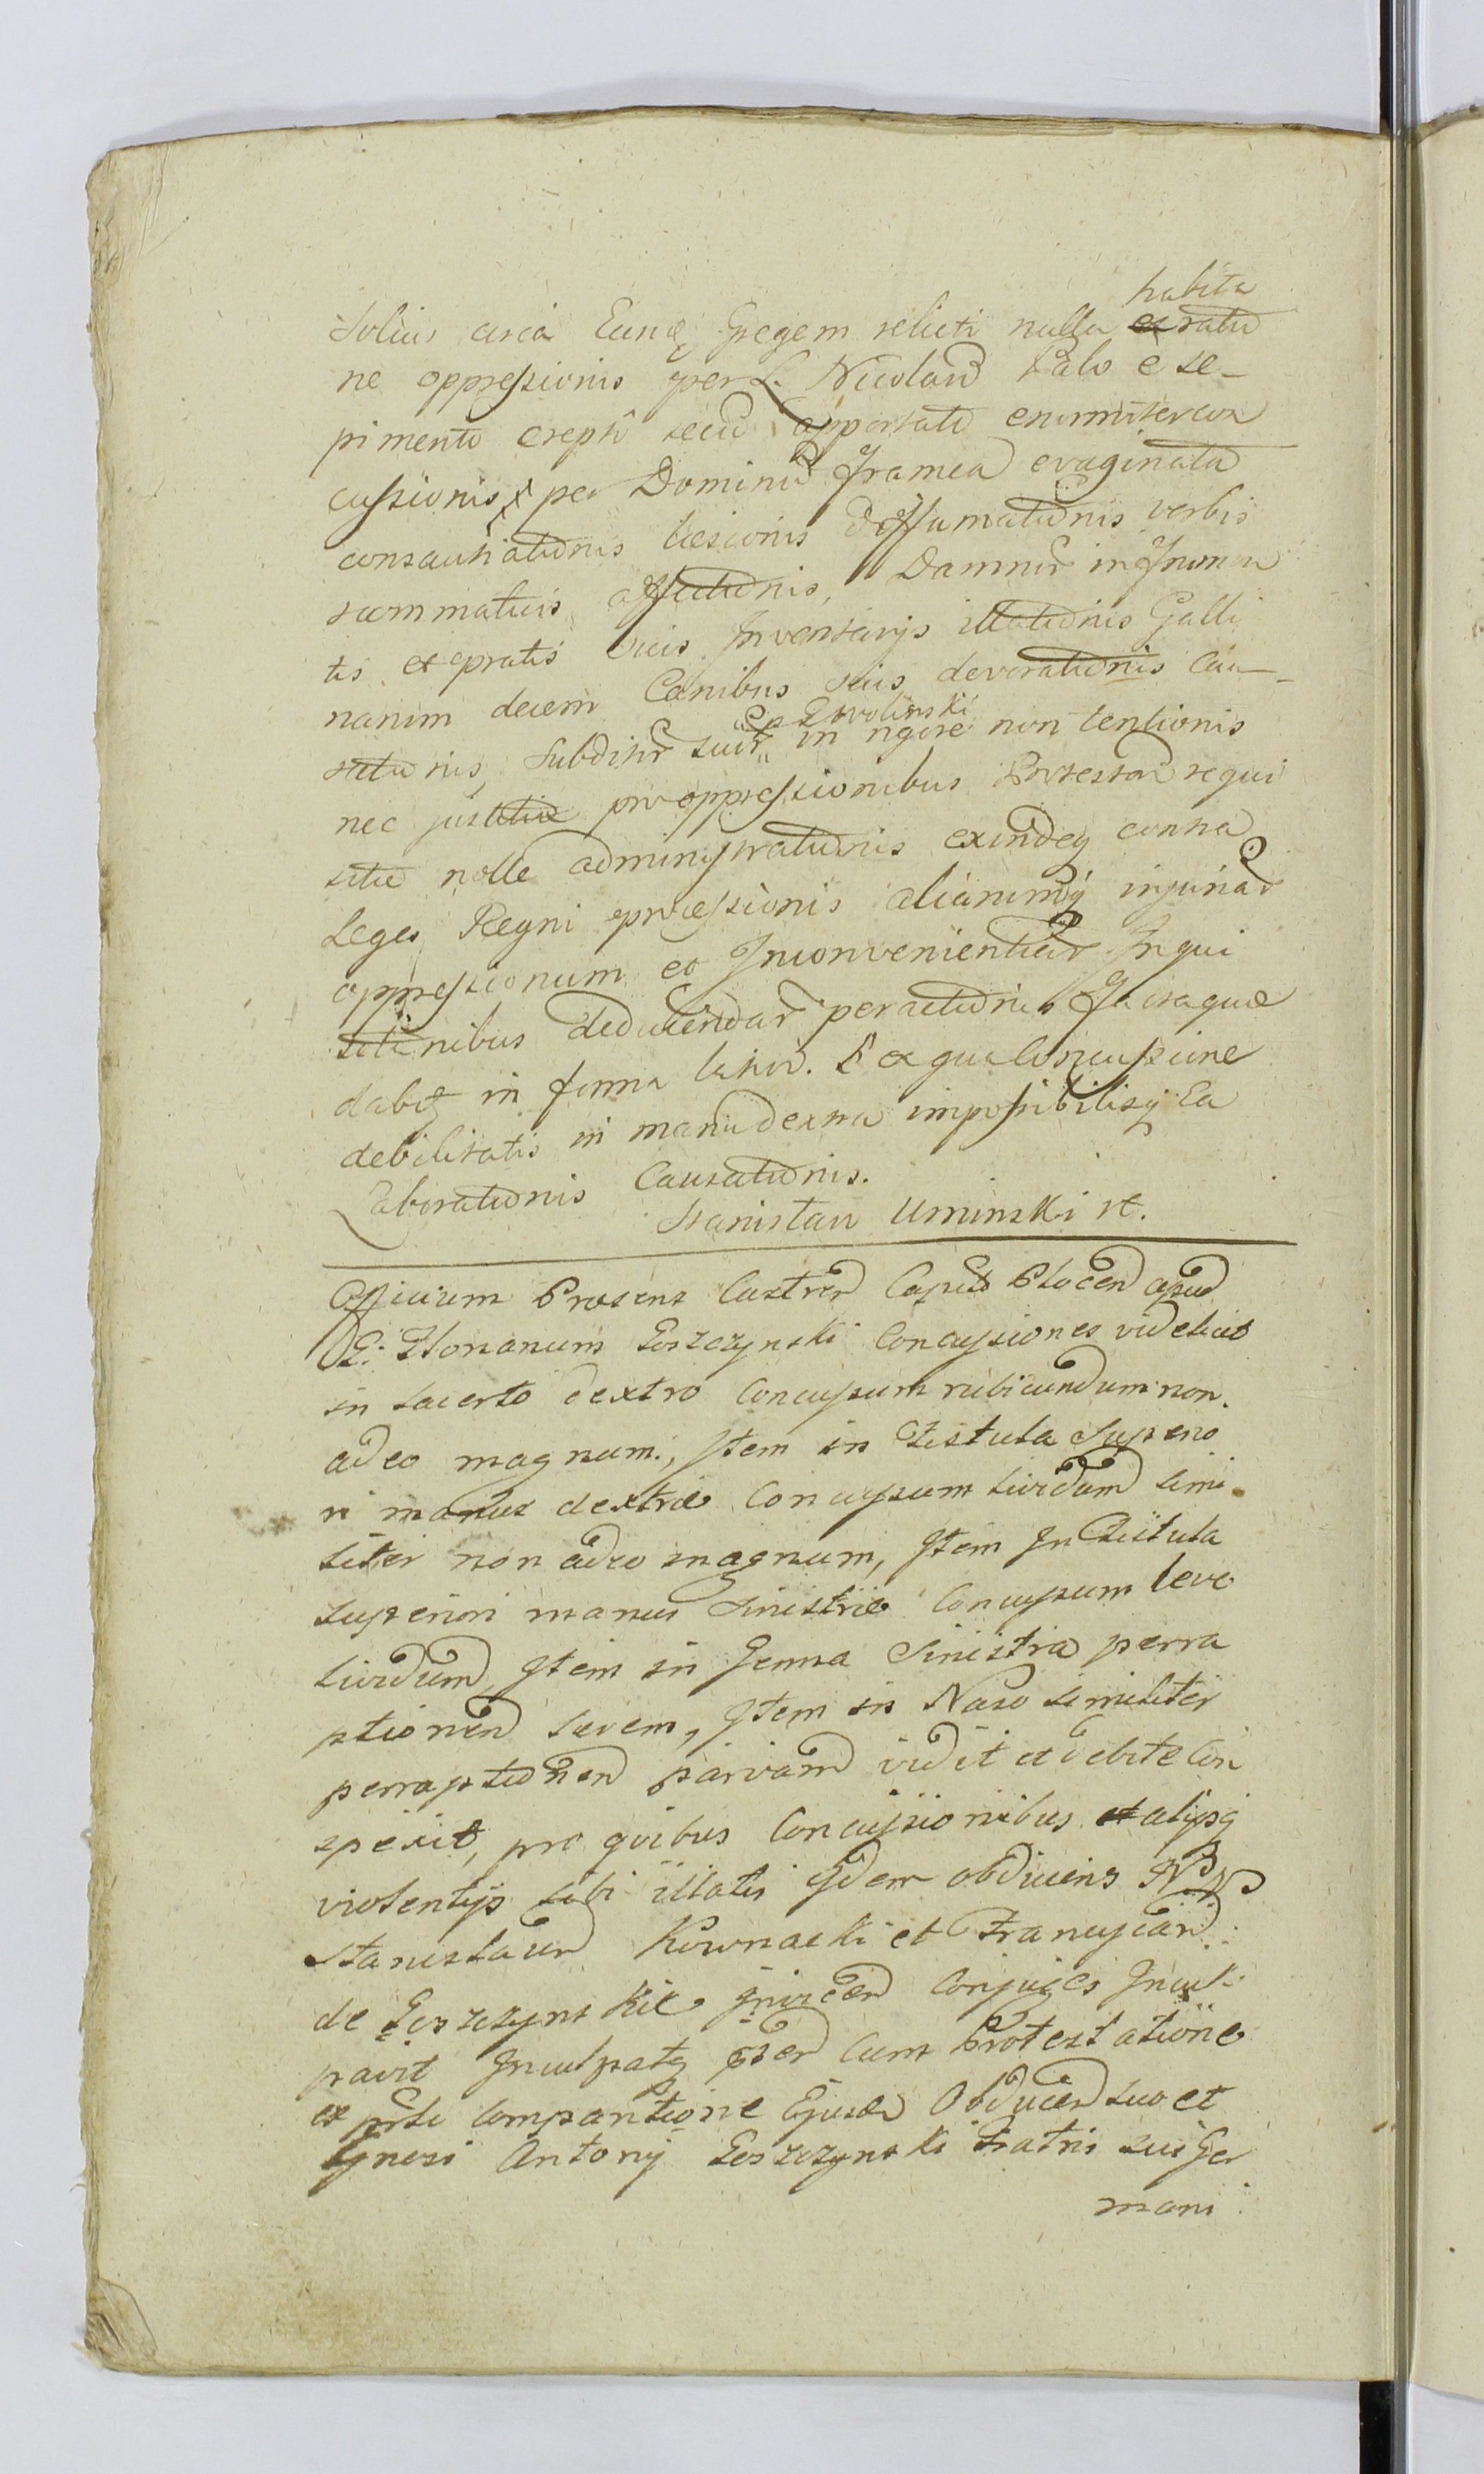 habita
solius circa Eunq Gregem relicti nulla et ratio
ne oppressionis per L. Nicolaū Palo e se-
pimento erepto secū apportato enormiter con
cussionis, et per Dominū Framea evaginata
consauciationis laesionis Diffamationis verbis
summativis affectionis, Damnor in Frumen
tis et pratis suis Inventarijs illationis Galli
narum decem Canibus suis devorationis Cau-
p Zwolinski
sationis, Subditor suor in rigore non tentionis
nec justitiae pro oppressionibus Protestan requi
sitae nolle administrationis exindeq contra
Leges Regni processionis aliarumq injuriar
oppressionum et Inconvenientiar Inqui
sitionibus deducendar peractionis Juraque
dabit in forma latior. Ex qua Concussione
debilitatis in manu dextra impossibilisq La
aborationis Causationis.
Stanisław Uminski
Officium Praesens Castren Capit Plocen apud
G: Florianum Goszczynski Concussiones videlicet
in lacerto dextro Concussum rubicundum non
adeo magnum, Item in Fistula Superio
ri manus dextrae Concussum lividum simi
liter non adeo magnum, Item In Fistula
superiori manus sinistrae Concussum leve
lividum, Item in Genna Sinistra perra
ptionem levem, Item in Naso similiter
perraptionem parvam vidit et debite Con
spexit, pro quibus Concussionibus et alijsq
violentijs sibi illatis Idem obducens
Stanislaum Kownacki et Franciscam
de Goszczynskie invicem Conjuges Incul
pavit Inculpatq pñt Cum Protestatione
et prsti Comparitione Ejusd Obducen suo et
Gnosi Antonij Goszczynski Fratris sui Ger
mani